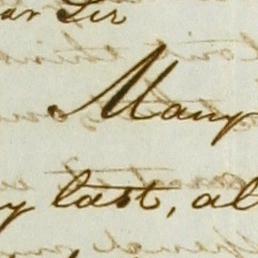 ar Sir
Many
y last, al